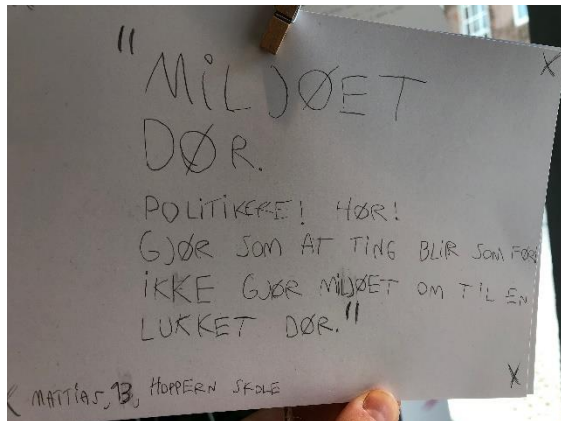 "MILJØET
DØR.
POLITIKERE! HØR!
GJØR SOM AT TING BLIR SOM FØR
IKKE GJØR MILJØET OM TIL EN
LUKKET DØR."
MATTIAS, 13, HOPPERN SKOLE